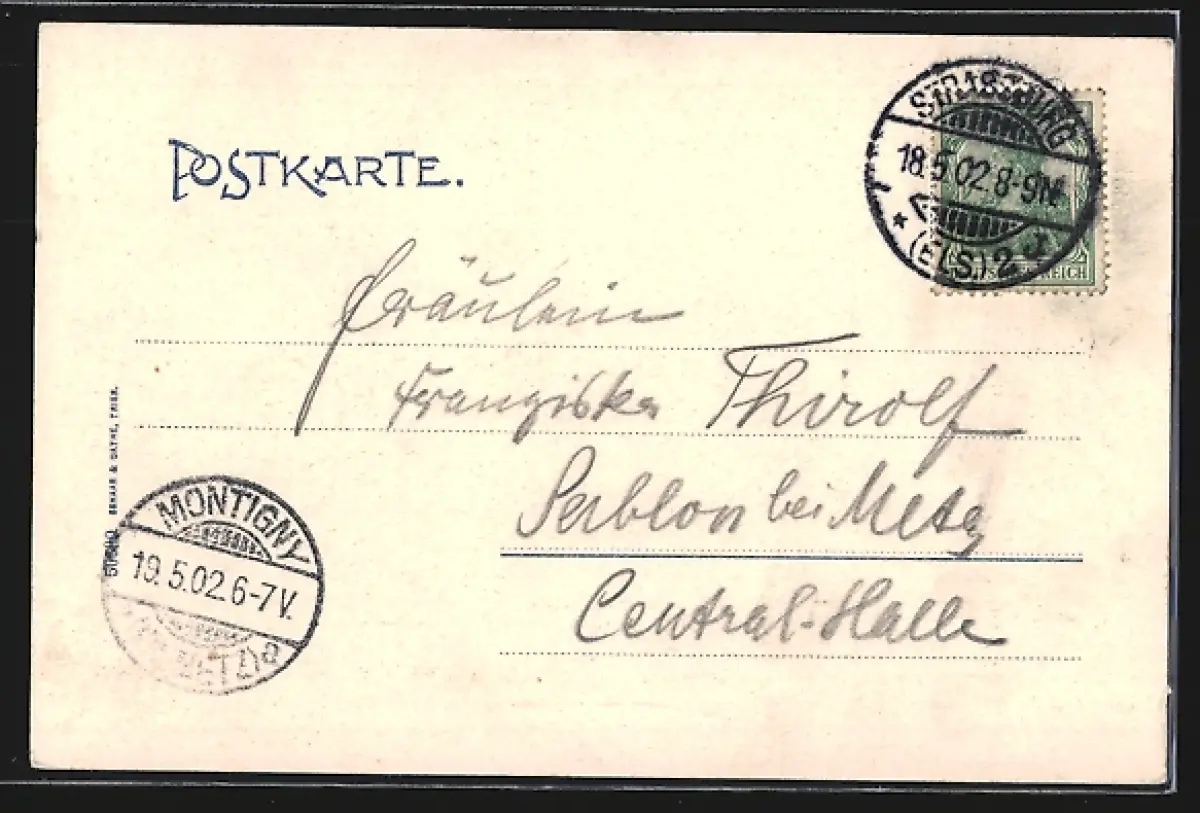 POSTKARTE.
STRASSBURG
18.5.02.8-9N.
* (ELS.) 2 J
REICH
Fräulein
Franziska Thirolf
Sablon bei Metz
Central-Halle
MONTIGNY
19.5.02.6-7V.
SCHAAR & DATHE, TRIER.